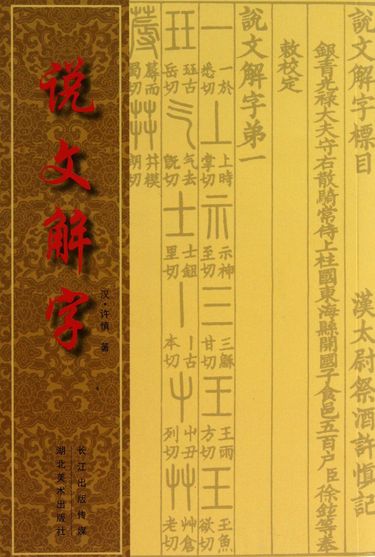 说文解字
汉·许慎 著
长江出版传媒
湖北美术出版社
說文解字標目 漢太尉祭酒許慎記
銀青光祿大夫守右散騎常侍上柱國東海縣開國子食邑五百户臣徐鉉等奉
敕校定
說文解字弟一
一 一於悉切 丄 上時掌切 示 示神至切 三 三穌甘切 王 王雨方切 王 玉魚欲切
玨 珏古岳切 气 气去旣切 士 士鉏里切 丨 丨古本切 屮 屮丑列切 艸 艸倉老切
蓐 蓐而蜀切 茻 茻模朗切